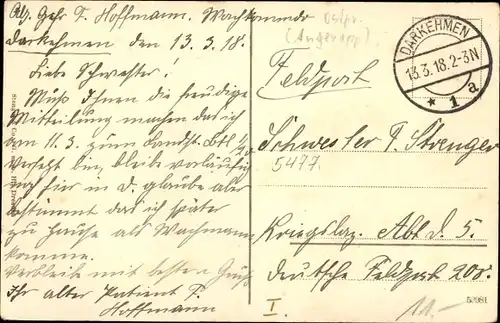 Abs. Gefr F. Hoffmann. Wachkommdo
Darkehmen den 13.3.18.
Liebe Schwester!
Muß Ihnen die freudige
Mitteilung machen das ich
am 11.3. zum Landst. Btl.
versetzt bin, bleibe vorläufig
hier in D. glaube aber
bestimmt das ich später
zu Hause als Wachmann
komme.
Verbleib mit besten Gruß
Ihr alter Patient F.
Hoffmann
Ostpr.
(Angerapp)
DARKEHMEN
13.3.18.2-3N
* 1 a
Feldpost
Schwester F. Strenger
5477
Kriegslaz. Abt d. 5.
deutsche Feldpost 205.
I.
52081
11.-